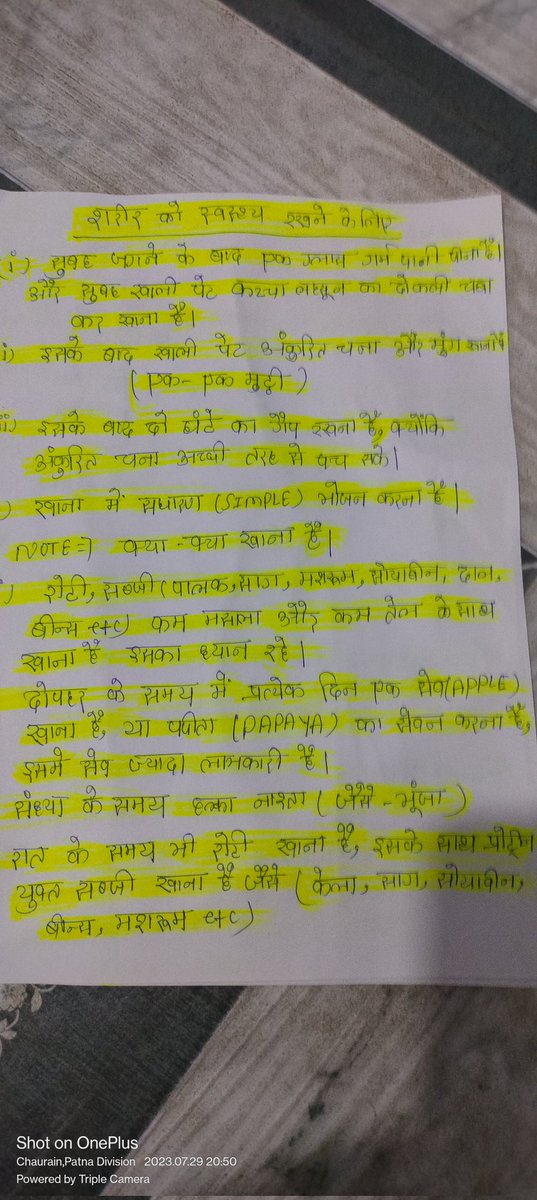 शरीर को स्वस्थ्य रखने के लिए
i) सुबह जगने के बाद एक ग्लास गर्म पानी पीना है।
और सुबह खाली पेट कच्चा लहसून का दोकली चबा
कर खाना है।
i) इसके बाद खाली पेट अंकुरित चना और मुंग खाना है
(एक-एक मुट्ठी)
ii) इसके बाद दो घंटे का गैप रखना है, क्योंकि
अंकुरित चना अच्छी तरह से पच सके।
) खाना में सधारण (SIMPLE) भोजन करना है।
NOTE⇒ क्या-क्या खाना है।
i) रोटी, सब्जी (पालक, साग, मशरूम, सोयाबीन, दाल,
बीन्स etc) कम मसाला और कम तेल के साथ
खाना है इसका ध्यान रहे।
दोपहर के समय में प्रत्येक दिन एक सेव (APPLE)
खाना है, या पपीता (PAPAYA) का सेवन करना है,
इसमे सेव ज्यादा लाभकारी है।
संध्या के समय हल्का नाश्ता (जैसे - भूंजा)
रात के समय भी रोटी खाना है, इसके साथ प्रोट्रीन
युक्त सब्जी खाना है जैसे (केला, साग, सोयाबीन,
बीन्स, मशरूम etc)
Shot on OnePlus
Chaurain,Patna Division 2023.07.29 20:50
Powered by Triple Camera